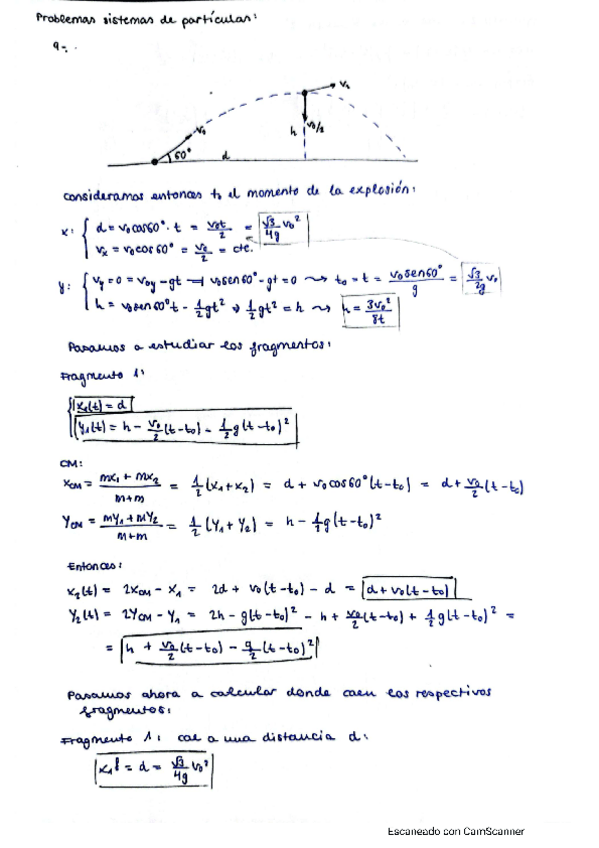 Problemas sistemas de partículas:
9-.
v₂
v₀
h
v₀/2
60°
d
consideramos entonces t₀ el momento de la explosión:
x: { d = v₀cos60°·t = v₀t/2 = √3/4g v₀²
vₓ = v₀cos60° = v₀/2 = cte.
y: { v_y = 0 = v₀y - gt → v₀sen60° - gt = 0 ⇝ t₀ = t = v₀sen60°/g = √3/2g v₀
h = v₀sen60°t - 1/2 gt² → 1/2 gt² = h ⇝ h = 3v₀²/8t
Pasamos a estudiar los fragmentos:
Fragmento 1:
{ x₁(t) = d
y₁(t) = h - v₀/2 (t-t₀) - 1/2 g(t-t₀)²
CM:
x_CM = mx₁ + mx₂ / m+m = 1/2 (x₁+x₂) = d + v₀cos60°(t-t₀) = d + v₀/2 (t-t₀)
Y_CM = mY₁ + mY₂ / m+m = 1/2 (Y₁ + Y₂) = h - 1/2 g(t-t₀)²
Entonces:
x₂(t) = 2x_CM - x₁ = 2d + v₀(t-t₀) - d = d + v₀(t-t₀)
Y₂(t) = 2Y_CM - Y₁ = 2h - g(t-t₀)² - h + v₀/2 (t-t₀) + 1/2 g(t-t₀)² =
= h + v₀/2 (t-t₀) - g/2 (t-t₀)²
Pasamos ahora a calcular donde caen los respectivos
fragmentos:
Fragmento 1: cae a una distancia d:
x₁f = d = √3/4g v₀²
Escaneado con CamScanner